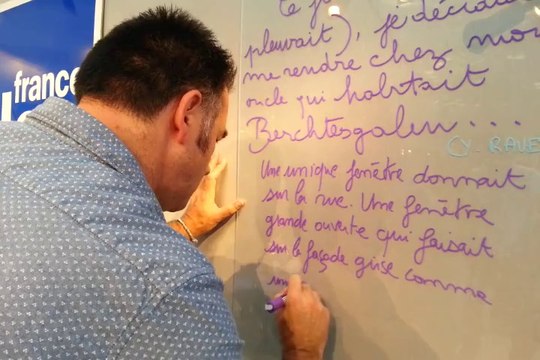 france
te je
pleuvait), je décidai
me rendre chez mon
oncle qui habitait
Berchtesgaden...
Une unique fenêtre donnait
sur la rue. Une fenêtre
grande ouverte qui faisait
sur la façade grise comme